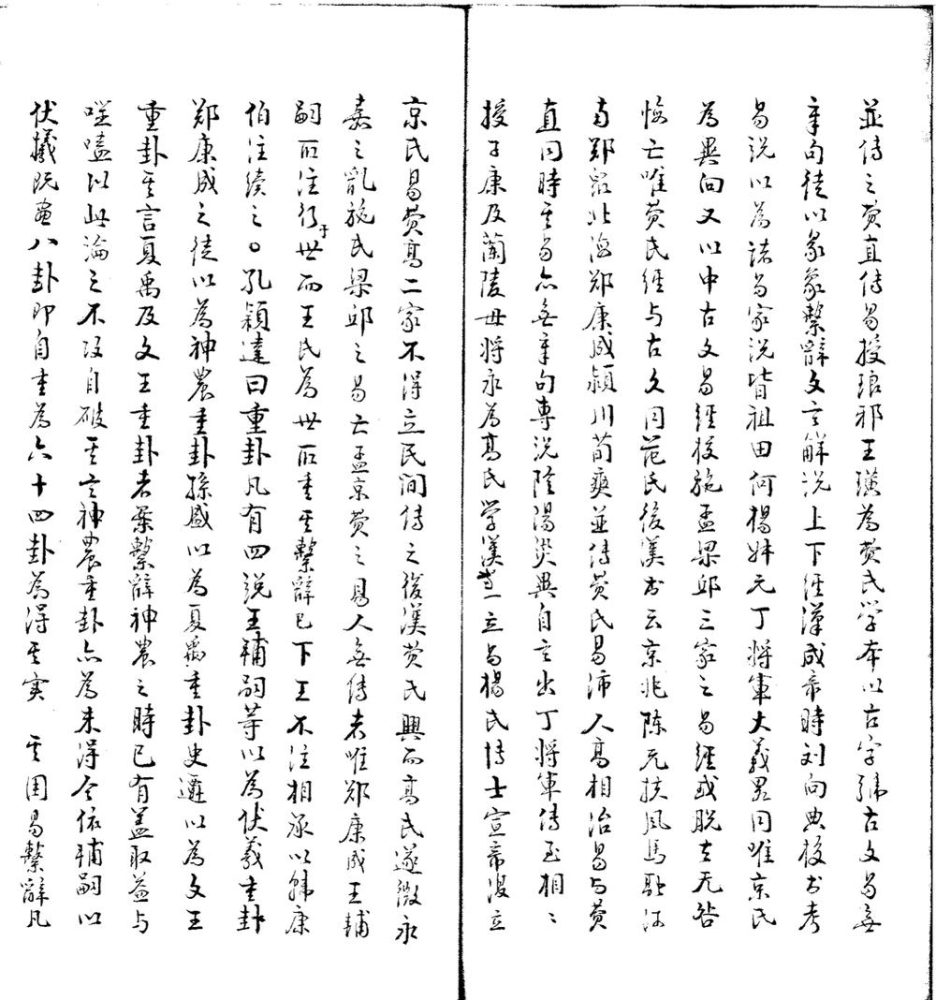 並传之费直传易授琅邪王璜为费氏学本以古字号古文易無
章句徒以彖象繫辭文言解说上下经漢成帝時刘向典校书考
易说以为诸易家说皆祖田何楊叔元丁將軍大義畧同唯京氏
为異向又以中古文易经校施孟梁邱三家之易经或脱去无咎
悔亡唯费氏经与古文同范氏後漢书云京兆陈元扶風馬融河
南郑眾北海郑康成颍川荀爽並传费氏易沛人高相治易与费
直同時其易亦無章句專说陰陽災異自言出丁將軍传至相〻
授子康及蘭陵毋將永为高氏学漢初立易楊氏博士宣帝復立
京氏易费高二家不得立民间传之後漢费氏興而高氏遂微永
嘉之亂施氏梁邱之易亡孟京费之易人無传者唯郑康成王輔
嗣所注行于世而王氏为世所重其繫辭已下王不注相承以韩康
伯注续之○孔颖達曰重卦凡有四说王輔嗣等以为伏羲重卦
郑康成之徒以为神農重卦孫盛以为夏禹重卦史遷以为文王
重卦其言夏禹及文王重卦者案繫辭神農之時已有蓋取益与
噬嗑以此論之不攻自破其言神農重卦亦为未得今依輔嗣以
伏犧既畫八卦即自重为六十四卦为得其实 其用易繫辭凡